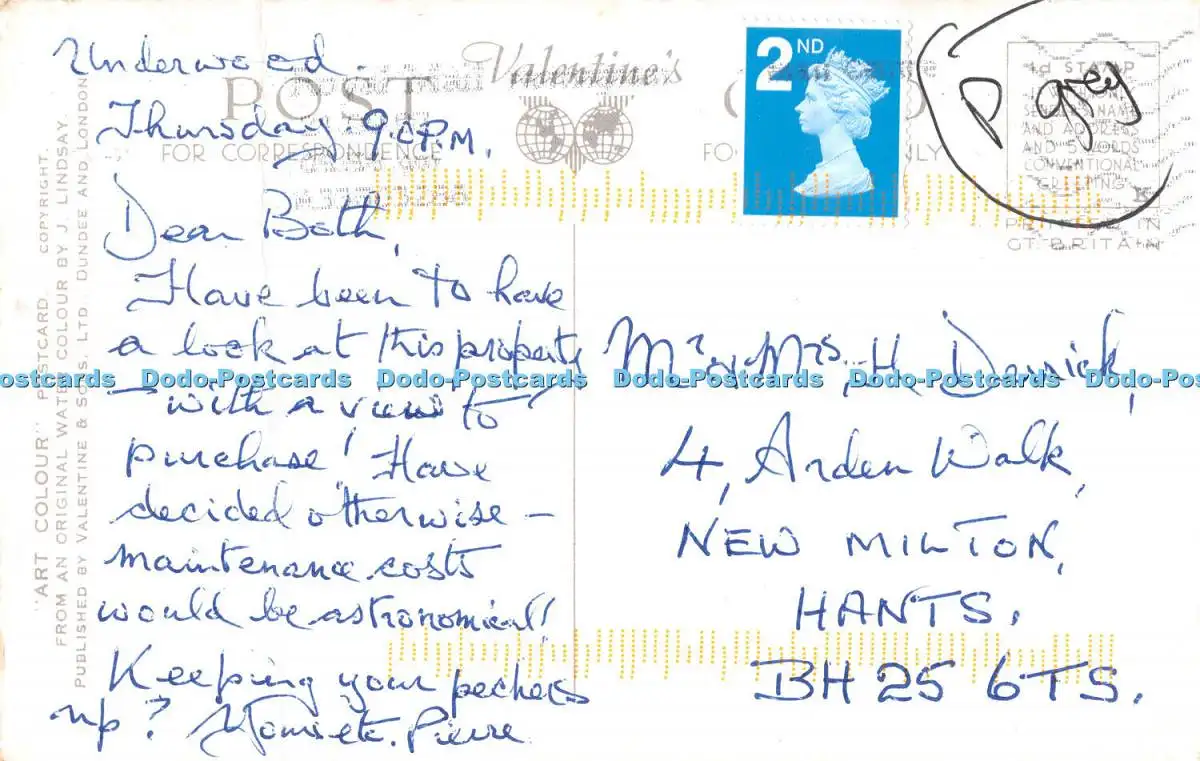 Underwood
Thursday. 9. P.M.
Dear Both,
Have been to have
a look at this property
- with a view to
purchase! Have
decided otherwise -
maintenance costs
would be astronomical!
Keeping your peckers
up? Pierre
Valentine's
POST
FOR CORRESPONDENCE
2ND
P grey
STAMP
AND ADDRESS
AND 5 WORDS
CONVENTIONAL
GREETING
PRINTED IN
GT BRITAIN
Mr & Mrs, H
4, Arden Walk,
NEW MILTON,
HANTS.
BH 25 6TS.
"ART COLOUR" POSTCARD. COPYRIGHT.
FROM AN ORIGINAL WATER COLOUR BY J. LINDSAY.
PUBLISHED BY VALENTINE & SONS. LTD. DUNDEE AND LONDON
Dodo-Postcards Dodo-Postcards Dodo-Postcards Dodo-Postcards